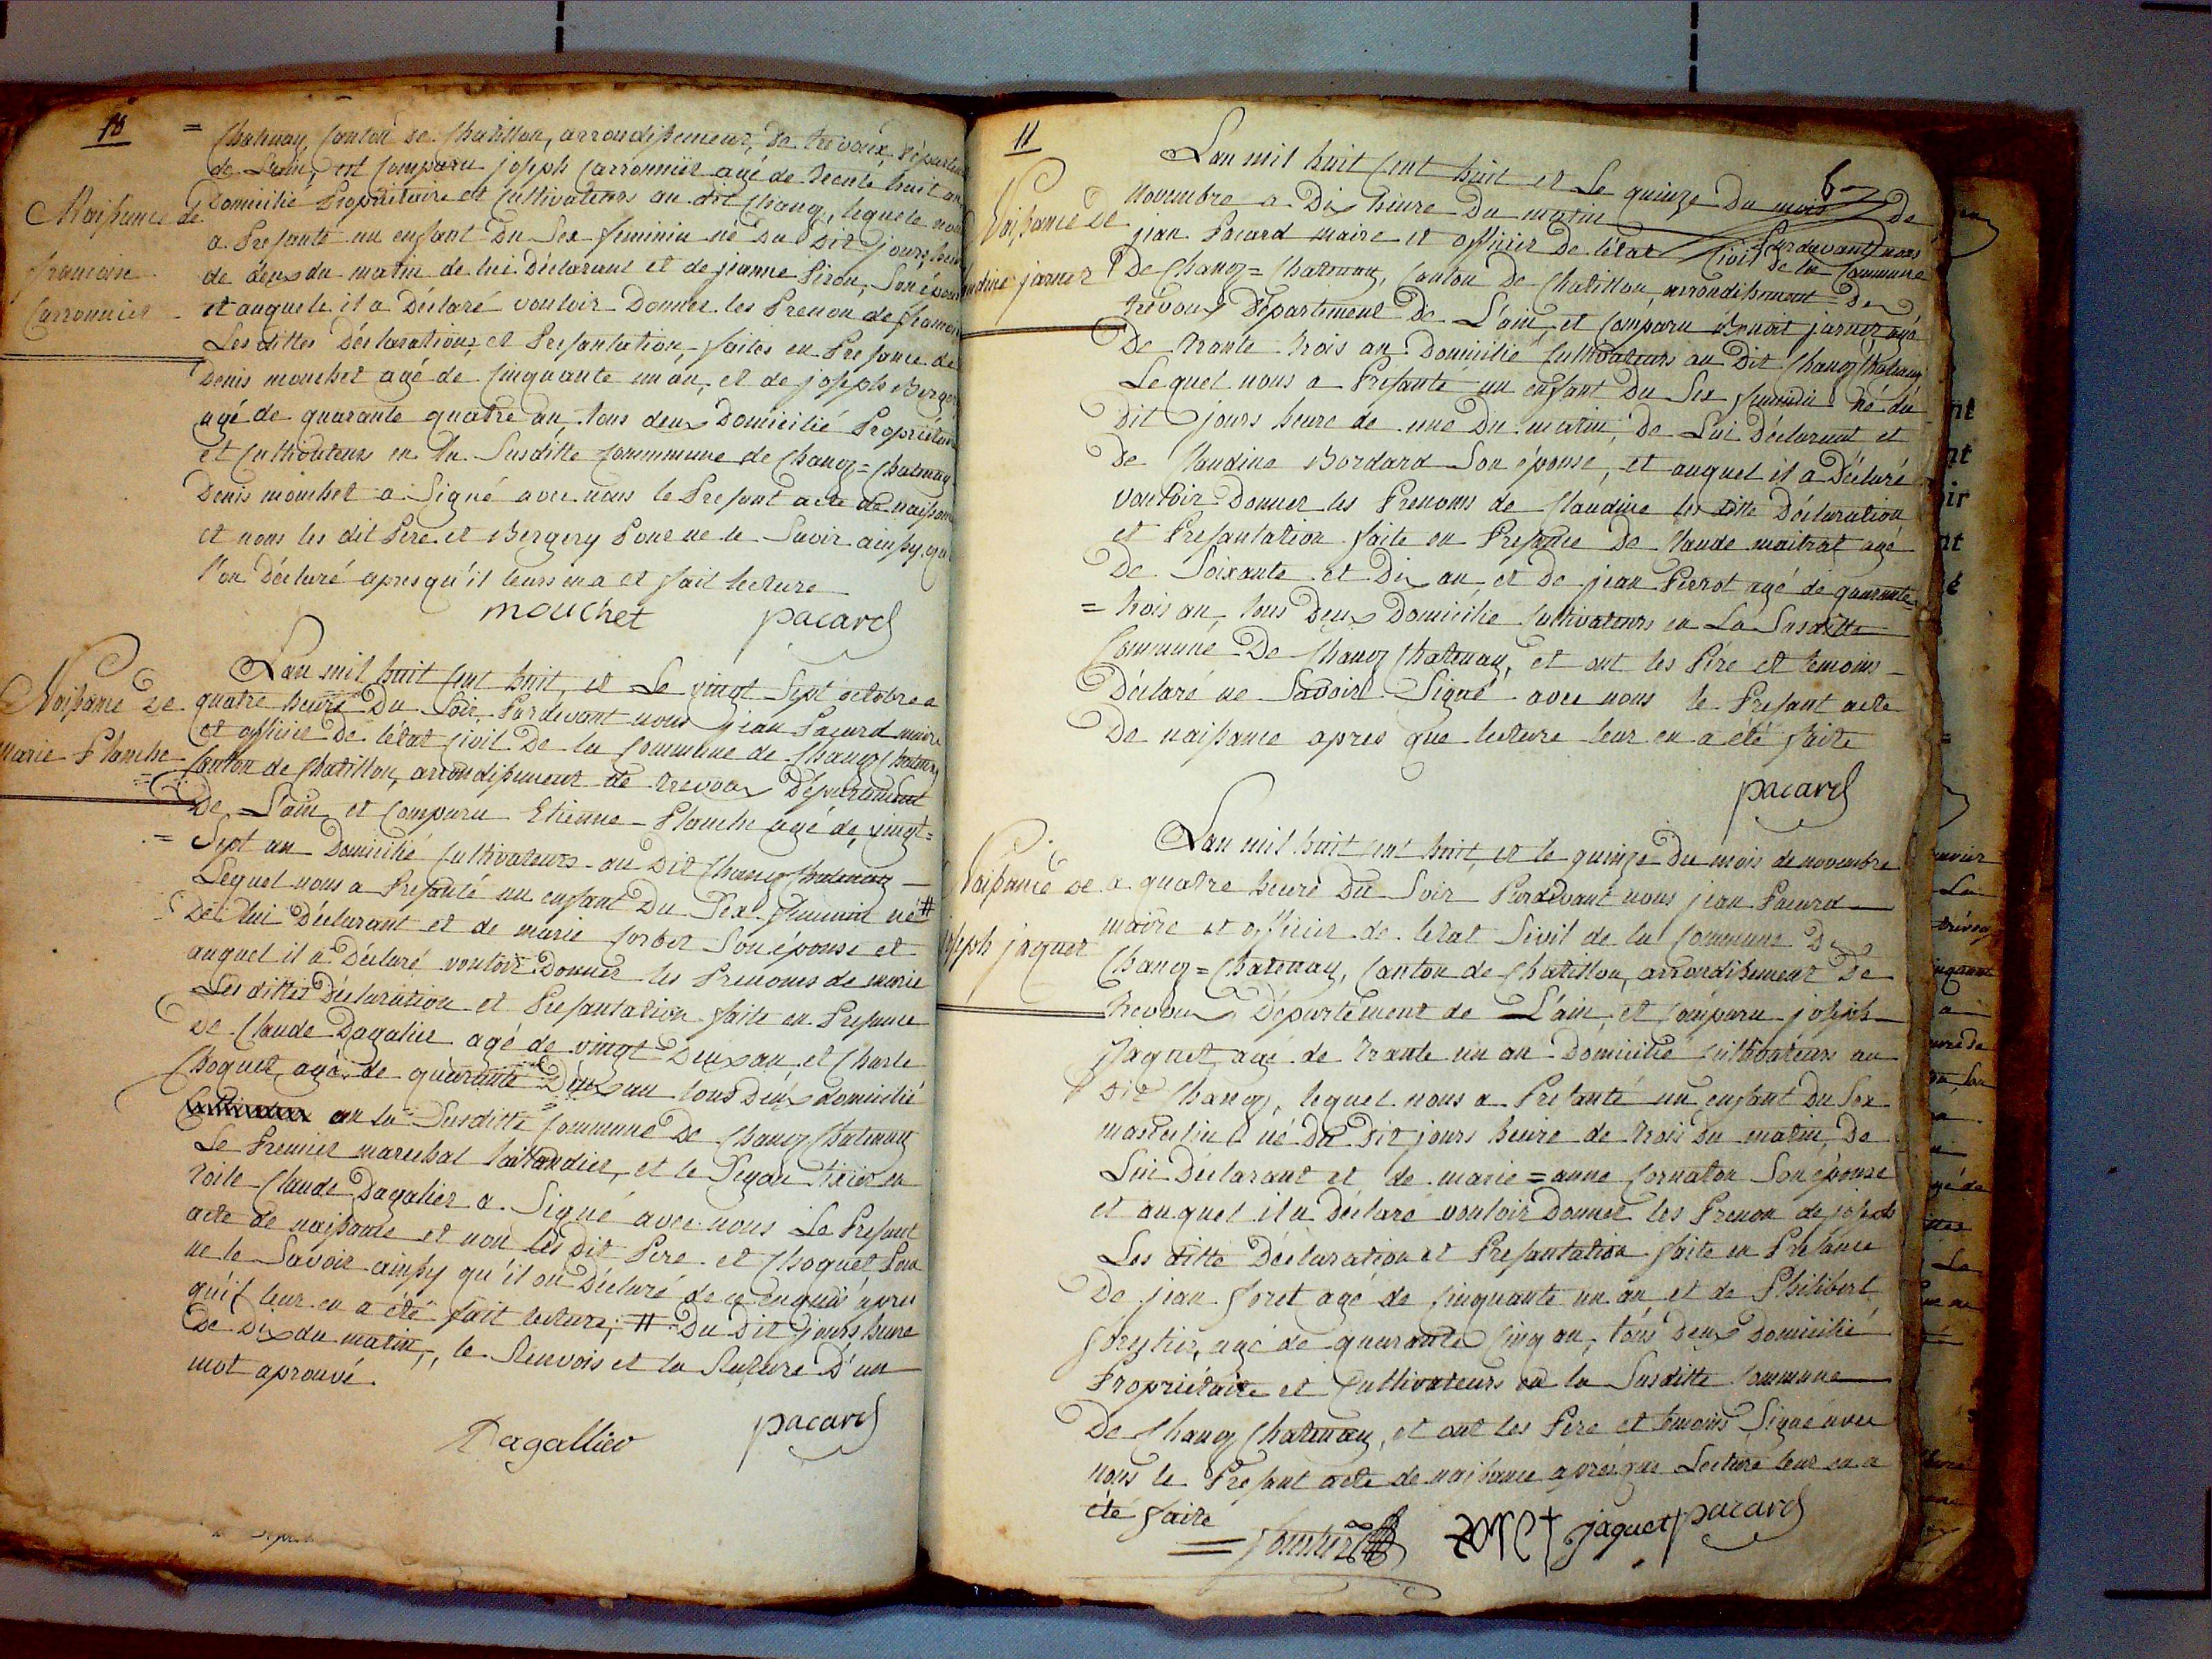 10
= Chatenay, Canton de Chatillon, arrondissement de trevoux, départem
de Lain, est Comparu joseph Carronnier agé de trente huit an
Naissance de
Domicilié Propriétaire et Cultivateurs au dit Chang, lequele nou
a Presanté un enfant du Sex feminin né du dit jours, heur
francoise
de deux du matin de lui Déclarant et de jeanne Piron, Son épous
Carronnier
et auquele il a Déclaré vouloir Donner les Prenon de francoi
Les dittes Déclarations, et Presantation, faites en Presance de
Denis mouchet agé de Cinquante un an, et de joseph Berger
agé de quarante quatre an, tous deux Domicilié Propriétair
et Cultivateurs en la Susditte Commmune de Chanoz=Chatenay
Denis mouchet a Signé avec nous le Presant acte de naissance
et nons les dit Pere et Bergery Pour ne le Savoir ainsy, qu
l'on Déclaré apres qu'il leurs en a et fait lecture
mouchet pacard
Lan mil huit Cent huit, et Le vingt Sept octobre a
Naissance de
quatre heure Du Soir, Pardevant nous jean Pacard maire
et officié De létat Civil De la Commune de Chanoz Chatenay
marie Planche
Canton de Chatillon, arrondissement de trevoux Département
De = Lain, et Comparu Etienne = Planche agé de, vingt=
= Sept an Domicilié Cultivateurs au Dit Chanoz Chatenay
Lequel nous a Presanté un enfant Du Sex feminin né #
De lui Déclarant et de marie Corbet Son épouse et
auquel il a Déclaré vouloir Donner les Prenoms de marie
Les dittes Déclaration et Presantation faite en Presance
de Claude Dagalier agé de vingt Deux an, et Charle
Choquet, agé de quarante Deux an tous Deux domicilié
en la Susditte Commune De Chanoz Chatenay
Le Premier marechal taillandier, et le Segon tixier en
toile Claude Dagalier a Signé avec nous Le Presant
acte de naissance et non les Dit Pere et Choquet Pour
ne le Savoir ainsy qu'il on Déclaré de ce enquis apres
qu'il leur en a été fait lecture, # Du Dit jours heure
De Dix du matin, le Renvois et la Rature D'un
mot aprouvé.
Dagallier pacard
11
6
Lan mil huit Cent huit et Le quinze Du mois De
Naissance De
Novembre a Dix heure Du matin Pardevant nous
jean Pacard maire et officier De létat Civil De la Commune
audine jarner
De Chanoz = Chatenay, Canton De Chatillon, arrondissement De
trévoux Département De L'ain, et Comparu Benoit jarner, agé
De trante trois an Domicilié Cultivateurs au Dit Chanoz Chatenay
Lequel nous a Presanté un enfant Du Sex feminin né du
Dit jours heure de une Du matin, De Lui Déclarant et
De Claudine Bordard Son épouse, et auquel il a Déclaré
vouloir Donner les Prenoms de Claudine les ditte Déclaration
et Presantation faite en Presance De Claude maitrat agé
De Soixante et Dix an, et De jean Pierrot agé de quarante=
= trois an, tous Deux Domicilie Cultivateurs en La Susditte
Commune De Chanoz Chatenay, et ont les Pére et temoins
Déclaré ne Savoir Signé avec nous le Presant acte
De naissance apres que lecture leur en a été faite
pacard
Lan mil huit Cent huit, et le quinze Du mois de novembre
Naissance de
a quatre heure Du Soir Pardevant nous jean Pacard
maire et officier de letat Sivil de la Commune De
joseph jaquet
Chanoz = Chatenay, Canton de Chatillon, arrondissement De
trevoux Département de L'ain, et Comparu joseph
Jaquet, agé de trante un an Domicilié Cultivateurs au
Dit Chanoz, lequel nous a Presanté un enfant Du Sex
masculin né Du Dit jours heure de trois Du matin, De
Lui Déclarant et de marie = anne Cornaton Son épouse
et auquel il a Déclaré vouloir Donner les Prenon de joseph
Les ditte Déclaration et Presantation faite en Presance
De jean foret agé de Cinquante un an et de Philibert
forestier, agé de quarante Cinq an, tous Deux Domicilié
Propriétaire et Cultivateurs en la Susditte Commune
De Chanoz Chatenay, et ont les Pere et temoins Signé avec
nous le Presant acte de naissance apres que Lecture leur en a
été faite
jaquet pacard